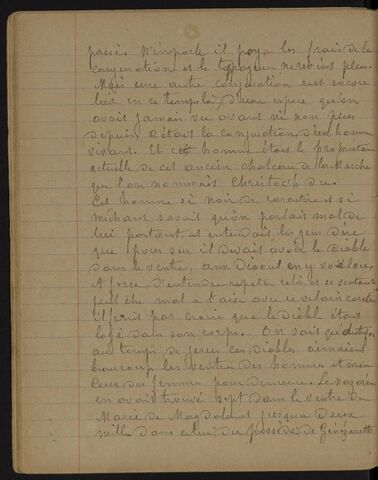 passé. N'importe il paya les frais de la
conjuration et le tapageur ne revint plus.
Mais une autre conjuration eut encore
lieu en ce temps là, d'une espece qu'on
avait jamais vu avant ni non plus
depuis c'était la conjuration d'un homme
vivant. Et cet homme était le propriétaire
actuelle de cet ancien chateau de la Roche
que l'on nommait Christoch du.
Cet homme si noir de caractère et si
mechant savait qu'on parlait mal de
lui partout, et entendait les gens dire
que pour sur il devait avoir le diable
dans le ventre, ann Diaoul en y voèlore.
A force d'entendre repeter cela et se sentant
peut être mal à l'aise avec ce vilain caractère
il finit par croire que le diable était
logé dans son corps. On sait qu'
au temps de Jesus les diables aimaient
beaucoup les ventres des hommes et même
ceux des femmes pour demeure. Le nazaréen
en avait trouvé sept dans le ventre de
Marie de Magdala et jusque deux
mille dans celui du possédé de Génézareth